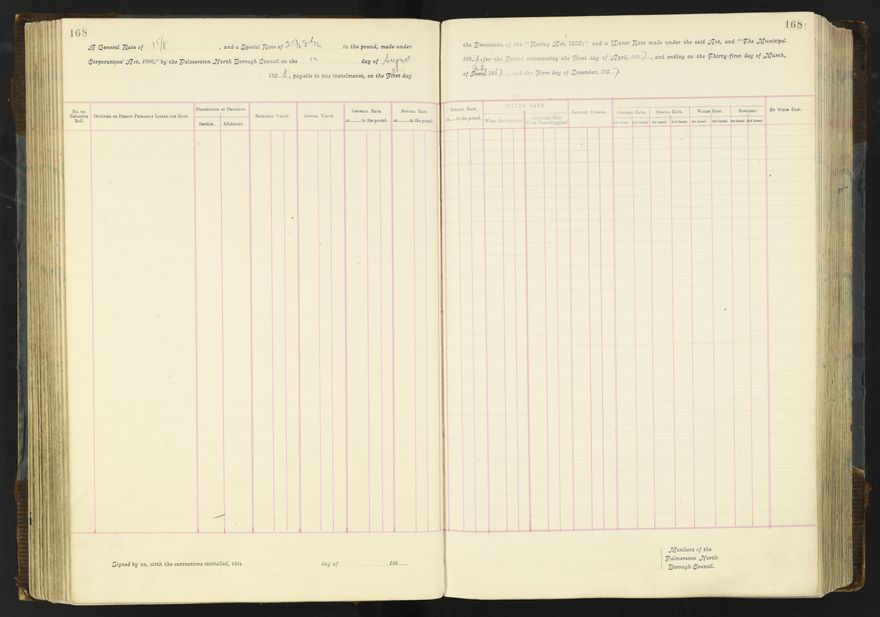 168
A General Rate of 1⅞, and a Special Rate of in the pound, made under
Corporations' Act, 1886," by the Palmerston North Borough Council on the day of August
189 , payable in two instalments, on the First day
No. on Valuation Roll.
Occupier or Person Primarily Liable for Rate.
Description of Property.
Section.
Allotment.
Rateable Value.
Annual Value.
General Rate
at in the pound.
Special Rate
at in the pound.
168
the Provision of the "Rating Act, 1882;" and a Water Rate made under the said Act, and "The Municipal
189 7, for the Period commencing the First day of April, 189 7, and ending on the Thirty-first day of March,
July
of June, 189 7, and the First day of December, 189 7
Special Rate
at in the pound.
WATER RATE.
When Supplied
Additional Rate
Sanitary Charge.
General Rate.
Special Rate.
Water Rate.
Sanitary.
1st Instal. 2nd Instal. 1st Instal. 2nd Instal. 1st Instal. 2nd Instal. 1st Instal. 2nd Instal.
By Whom Paid.
Signed by us, with the corrections initialled, this day of 189
Members of the
Palmerston North
Borough Council.